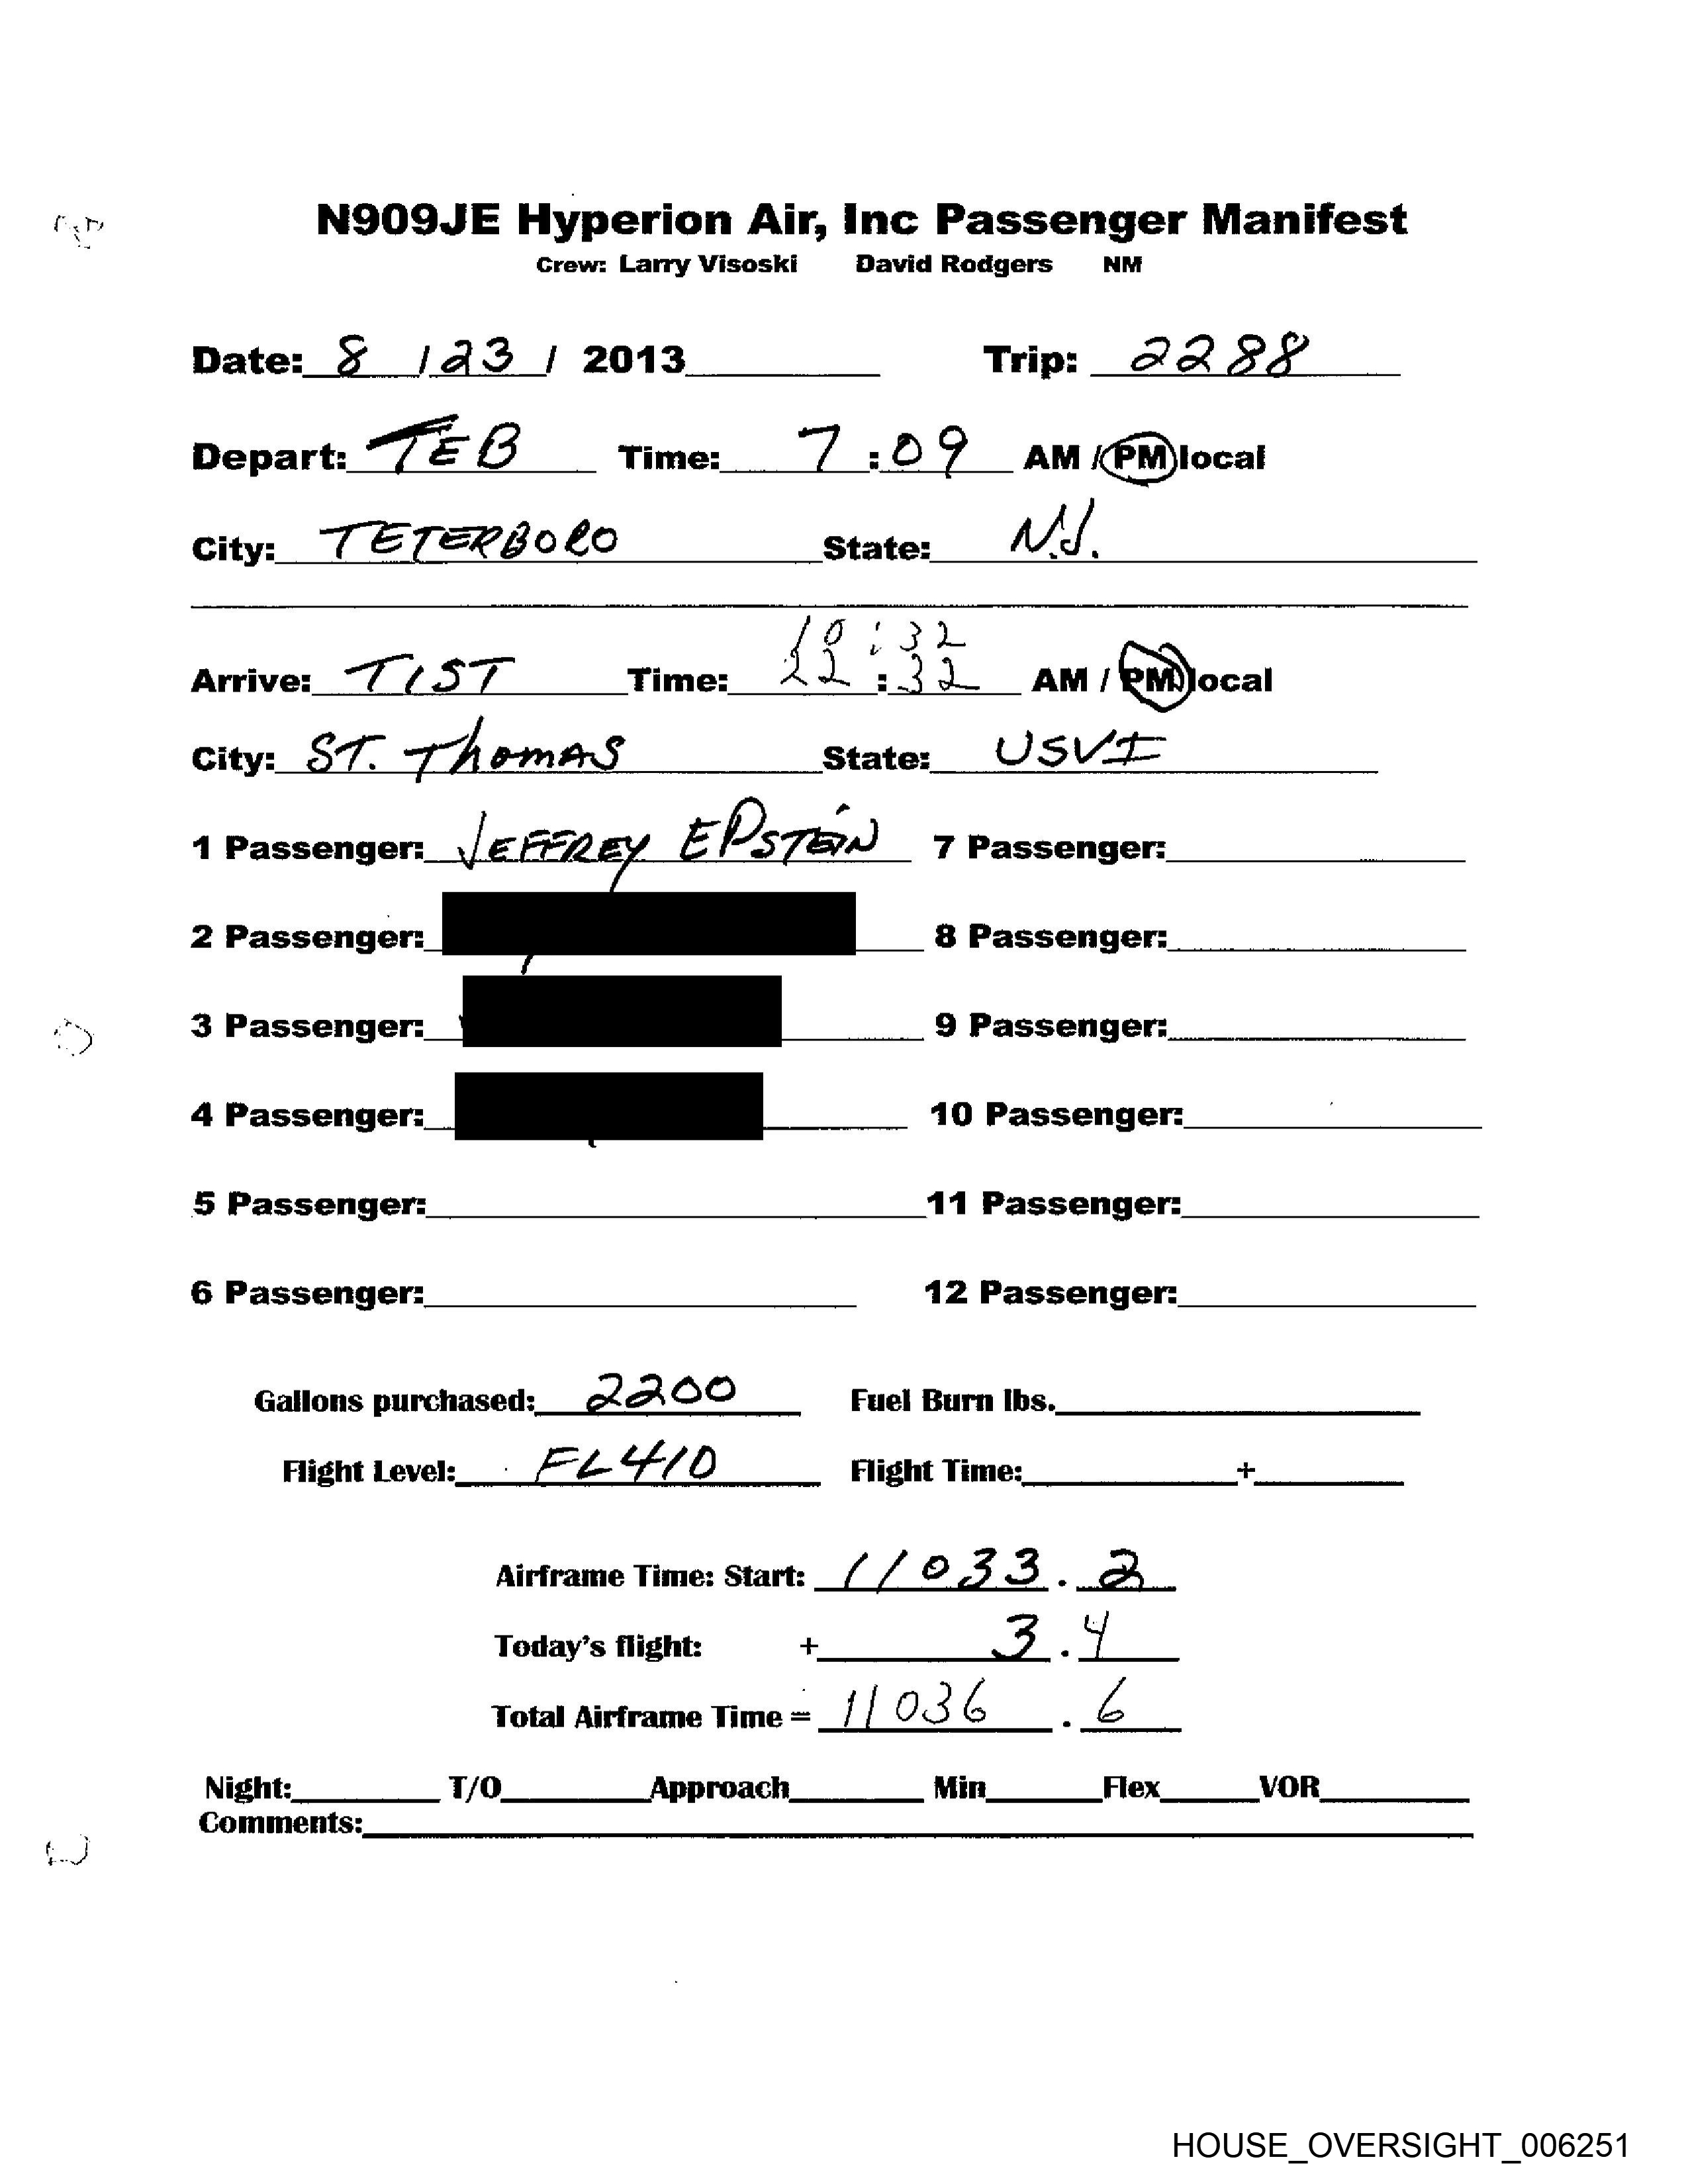 N909JE Hyperion Air, Inc Passenger Manifest
Crew: Larry Visoski David Rodgers NM
Date: 8 / 23 / 2013 Trip: 2288
Depart: TEB Time: 7 : 09 AM / PM local
City: TETERBORO State: N.J.
10 : 32
Arrive: TIST Time: 22 : 32 AM / PM local
City: ST. Thomas State: USVI
1 Passenger: JEFFREY EPSTEIN 7 Passenger:
2 Passenger: 8 Passenger:
3 Passenger: 9 Passenger:
4 Passenger: 10 Passenger:
5 Passenger: 11 Passenger:
6 Passenger: 12 Passenger:
Gallons purchased: 2200 Fuel Burn lbs.
Flight Level: FL410 Flight Time: +
Airframe Time: Start: 11033 . 2
Today's flight: + 3 . 4
Total Airframe Time = 11036 . 6
Night: T/O Approach Min Flex VOR
Comments:
HOUSE_OVERSIGHT_006251